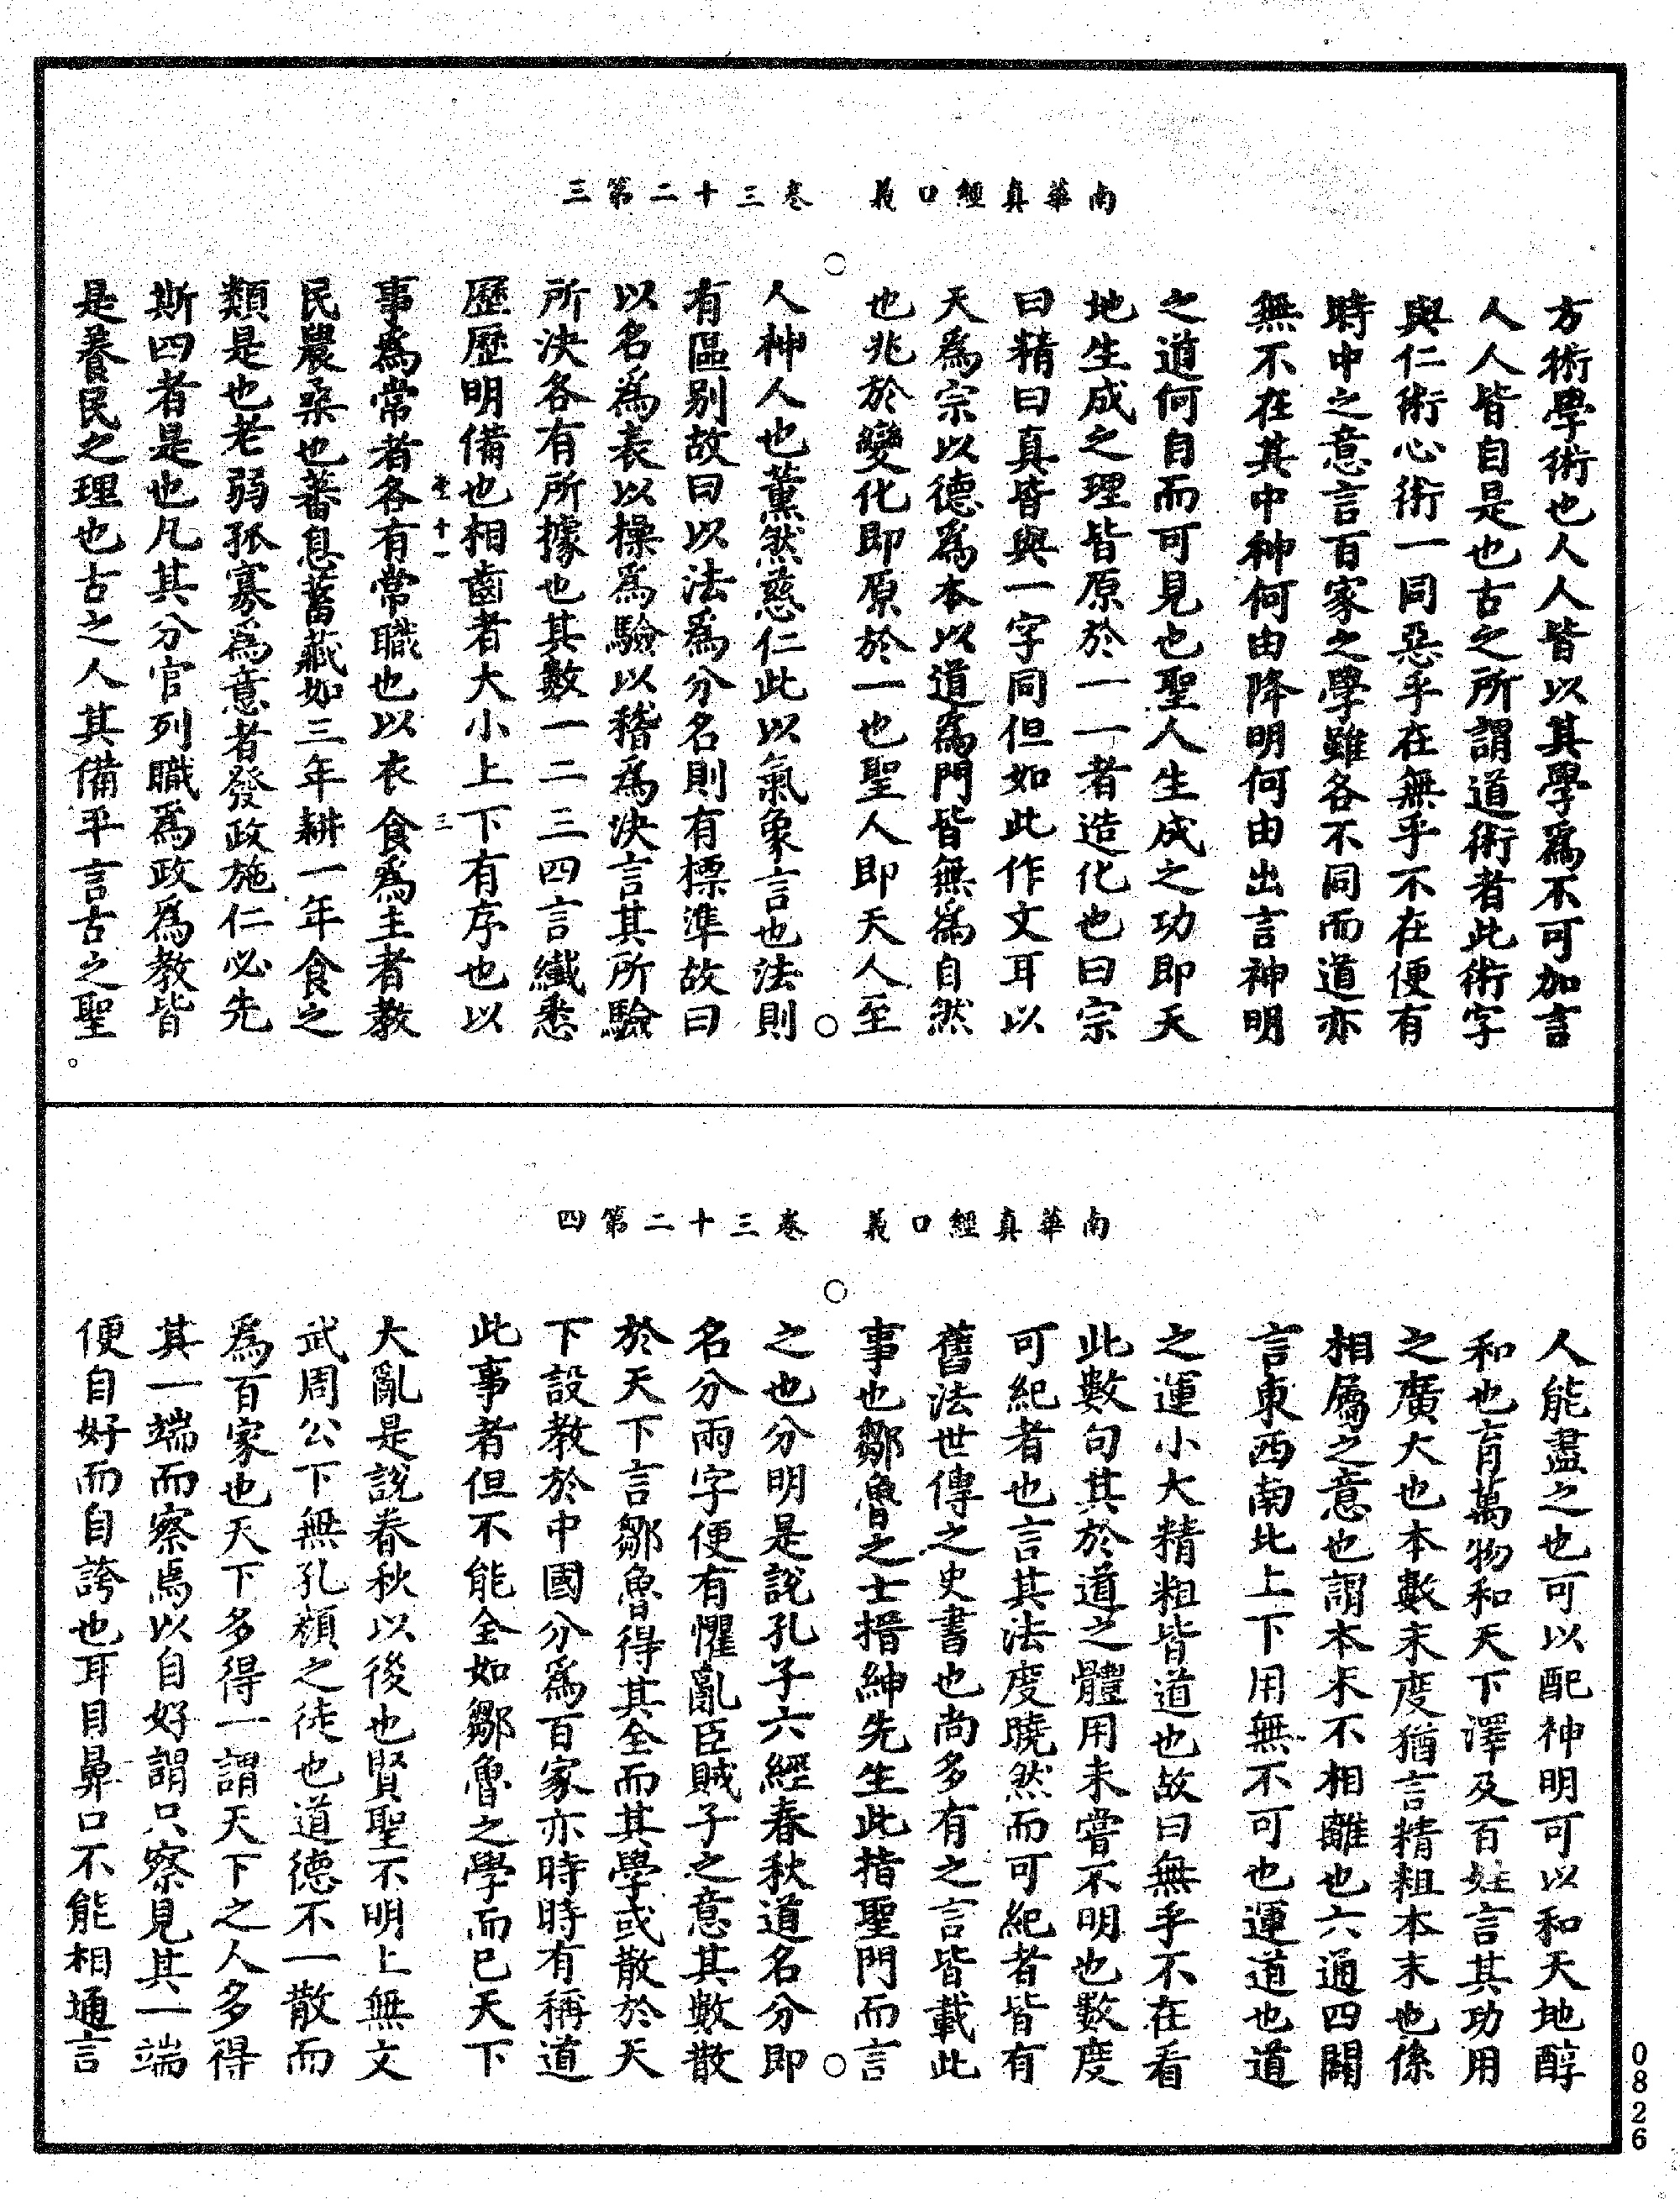 南華真經口義　卷三十二第三
方術學術也人人皆以其學爲不可加言
人人皆自是也古之所謂道術者此術字
與仁術心術一同惡乎在無乎不在便有
時中之意言百家之學雖各不同而道亦
無不在其中神何由降明何由出言神明
之道何自而可見也聖人生成之功即天
地生成之理皆原於一一者造化也曰宗
曰精曰真皆與一字同但如此作文耳以
天爲宗以德爲本以道爲門皆無爲自然
也兆於變化即原於一也聖人即天人至
人神人也薰然慈仁此以氣象言也法則
有區别故曰以法爲分名則有標準故曰
以名爲表以操爲驗以稽爲決言其所驗
所決各有所據也其數一二三四言纖悉
歷歷明備也相齒者大小上下有序也以
事爲常者各有常職也以衣食爲主者教
民農桑也蕃息蓄藏如三年耕一年食之
類是也老弱孤寡爲意者發政施仁必先
斯四者是也凡其分官列職爲政爲教皆
是養民之理也古之人其備乎言古之聖
南華真經口義　卷三十二第四
人能盡之也可以配神明可以和天地醇
和也育萬物和天下澤及百姓言其功用
之廣大也本數末度猶言精粗本末也係
相屬之意也謂本末不相離也六通四闢
言東西南北上下用無不可也運道也道
之運小大精粗皆道也故曰無乎不在看
此數句其於道之體用未嘗不明也數度
可紀者也言其法度曉然而可紀者皆有
舊法世傳之史書也尚多有之言皆載此
事也鄒魯之士搢紳先生此指聖門而言
之也分明是說孔子六經春秋道名分即
名分兩字便有懼亂臣賊子之意其數散
於天下言鄒魯得其全而其學或散於天
下設教於中國分爲百家亦時時有稱道
此事者但不能全如鄒魯之學而已天下
大亂是說春秋以後也賢聖不明上無文
武周公下無孔顏之徒也道德不一散而
爲百家也天下多得一謂天下之人多得
其一端而察焉以自好謂只察見其一端
便自好而自誇也耳目鼻口不能相通言
0826